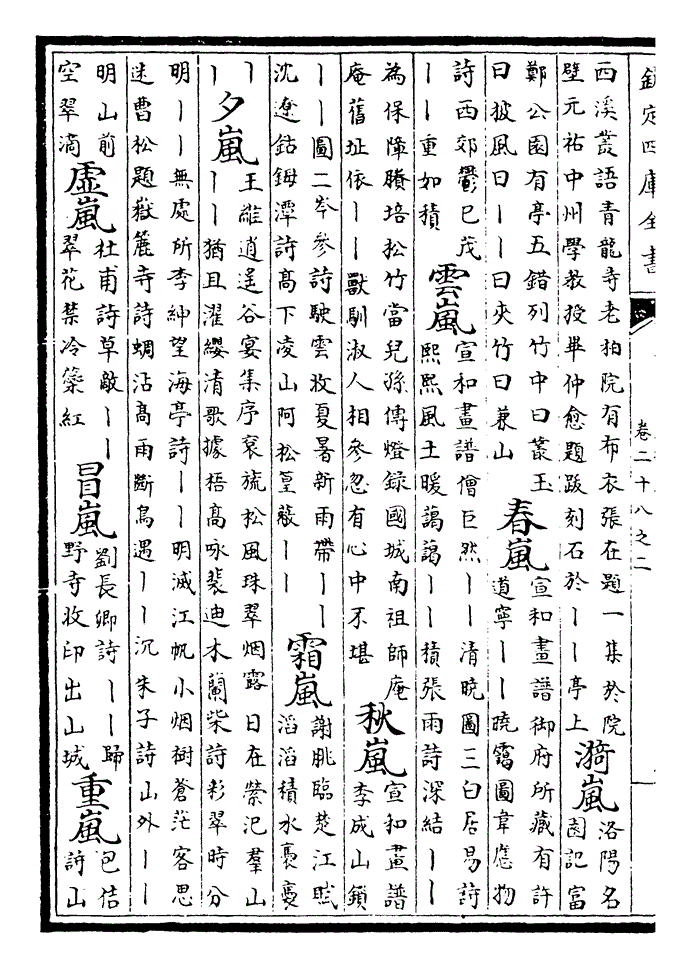 欽定四庫全書
卷二十八之二
西溪叢語青龍寺老柏院有布衣張在題一集於院
壁元祐中州學教授畢仲愈題跋刻石於丨丨亭上
漪嵐
洛陽名
園記富
鄭公園有亭五錯列竹中曰叢玉
曰披風曰丨丨曰夾竹曰兼山
春嵐
宣和畫譜御府所藏有許
道寧丨丨曉靄圖韋應物
詩西郊鬱已茂
丨丨重如積
雲嵐
宣和畫譜僧巨然丨丨清曉圖三白居易詩
熙熙風土暖藹藹丨丨積張雨詩深結丨丨
為保障賸培松竹當兒孫傳燈録國城南祖師庵
庵舊址依丨丨獸馴淑人相參忽有心中不堪
秋嵐
宣和畫譜
李成山鎖
丨丨圖二岑參詩駛雲收夏暑新雨帶丨丨
沈遼鈷鉧潭詩高下凌山阿松篁蔽丨丨
霜嵐
謝朓臨楚江賦
滔滔積水裊裊
丨
丨
夕嵐
王維逍遥谷宴集序衮旒松風珠翠烟露日在縈汜羣山
丨丨猶且濯纓清歌據梧高咏裴迪木蘭柴詩彩翠時分
明丨丨無處所李紳望海亭詩丨丨明滅江帆小烟樹蒼茫客思
迷曹松題嶽麓寺詩蜩沾高雨斷鳥遇丨丨沉朱子詩山外丨丨
明山前
空翠滴
虛嵐
杜甫詩草敵丨丨
翠花禁冷蘂紅
冒嵐
劉長卿詩丨丨歸
野寺收印出山城
重嵐
包佶
詩山